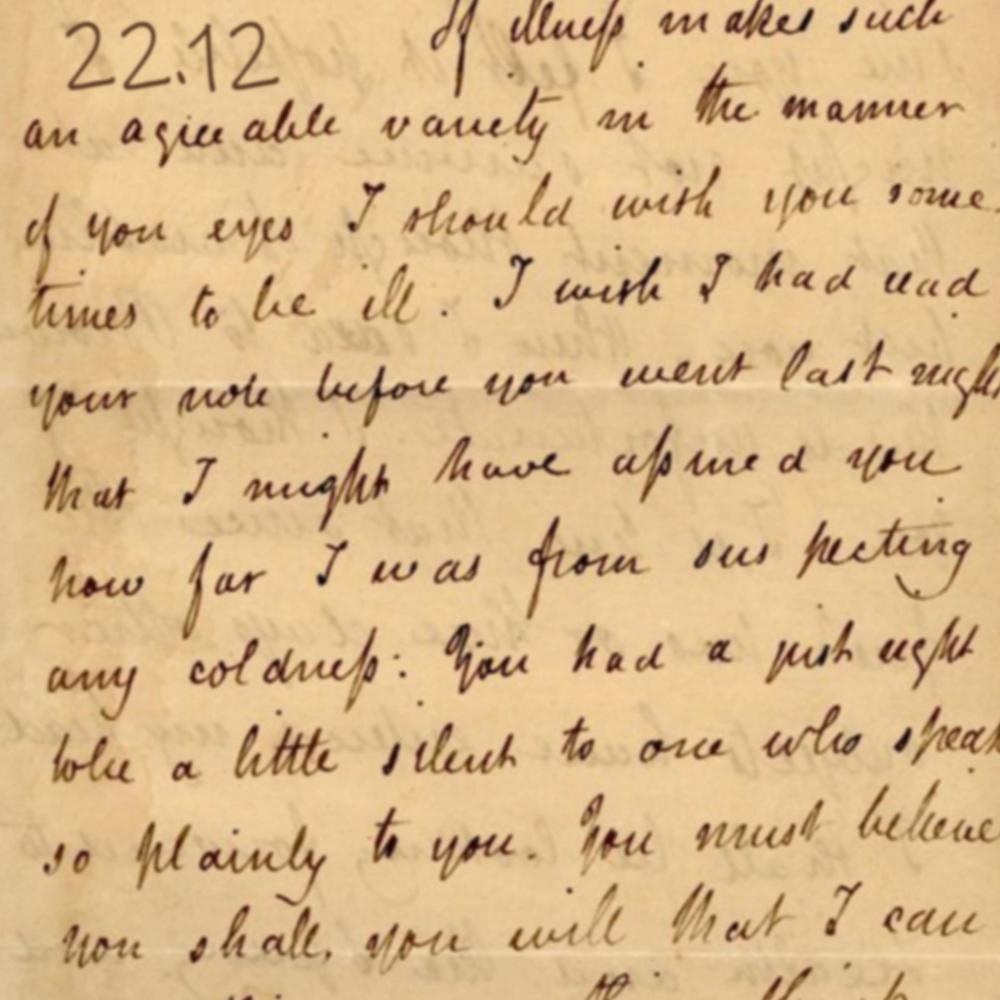 22.12
If illness makes such
an agreeable variety in the manner
of you eyes I should wish you some
times to be ill. I wish I had read
your note before you went last nigh
that I might have assured you
how far I was from suspecting
any coldness: You had a just right
to be a little silent to one who speak
so plainly to you. You must believe
you shall, you will that I can